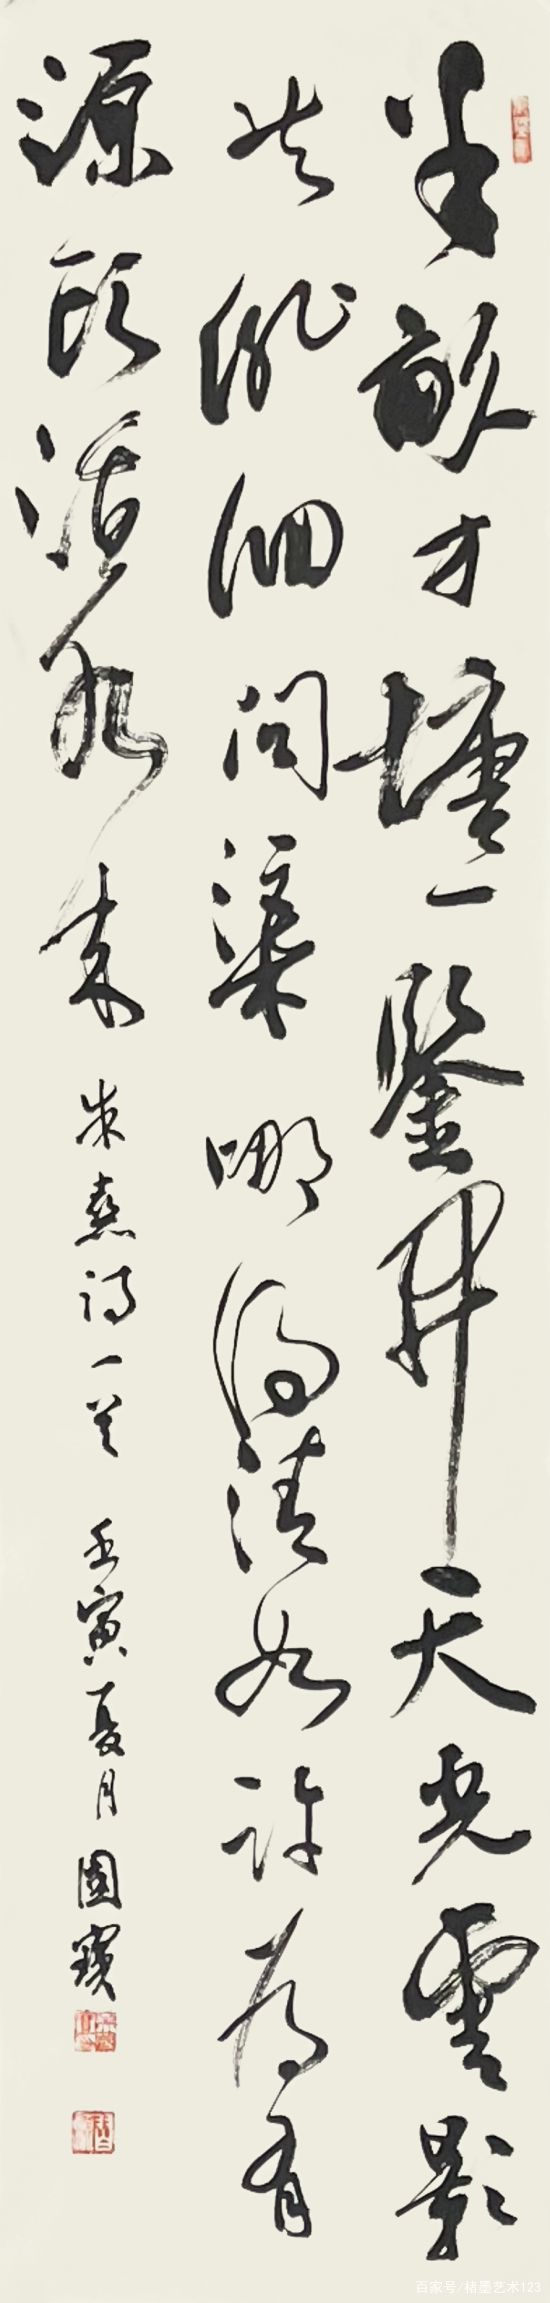 半亩方塘一鑒开天光雲影
共徘徊问渠哪得清如许为有
源頭活水来
朱熹诗一首 壬寅夏月國寳
百家号/楮墨艺术123